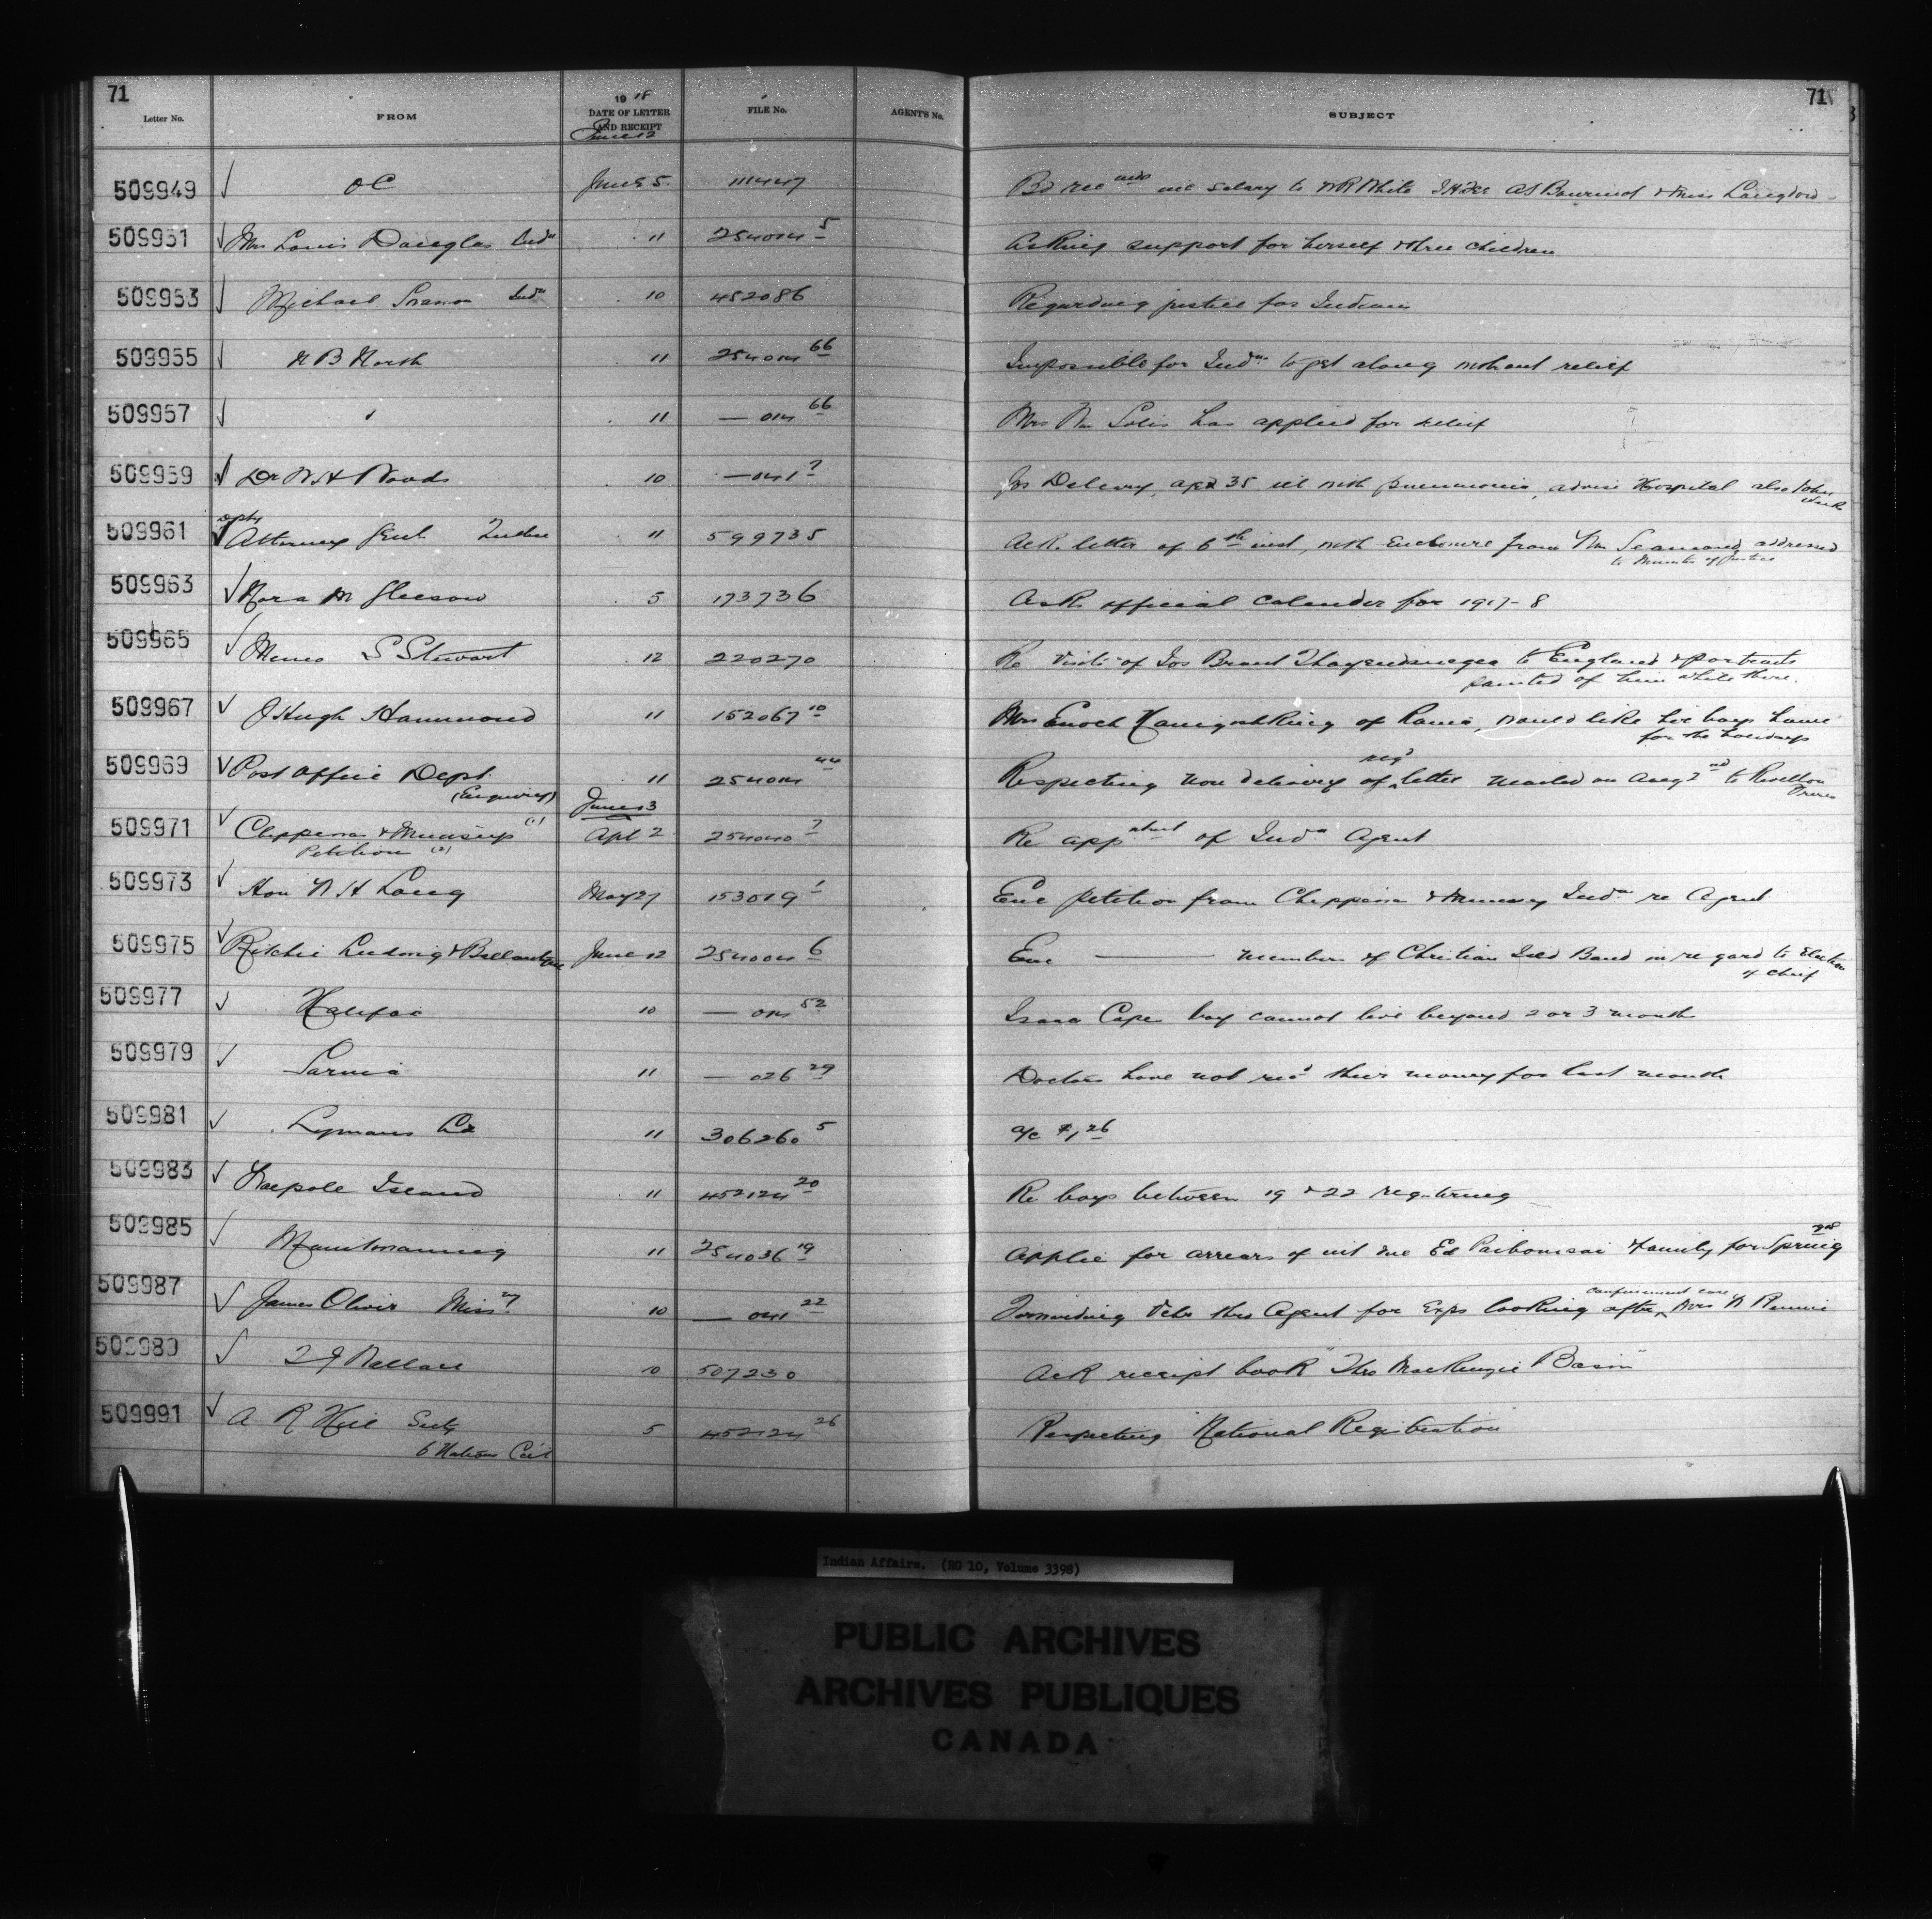 71 71
Letter No. FROM 1918 DATE OF LETTER AND RECEIPT FILE No. AGENTS No. SUBJECT
June 12
509949 ✓ O C June 5. 111447 salary to W R White & Miss Langdon
509951 ✓ Mrs Louis Douglas Indn 11 254014 5 Asking support for herself & three children
509953 ✓ Michael Indn 10 452086 Regarding justice for Indians
509955 ✓ N B North 11 254014 66 Impossible for Indns to get along without relief
509957 ✓ " 11 — 014 66 Mrs Wm Solis has applied for relief
509959 ✓ Dr W H Woods 10 — 041 7 Jos Delevey, aged 35 ill with pneumonia, advise Hospital also John
509961 ✓ Dpty Attorney Genl Quebec 11 599735 Ack letter of 6th inst, with Enclosure from Wm addressed
to Minister of Justice
509963 ✓ Nora M Gleeson 5 173736 Ask official Calendar for 1917-8
509965 ✓ S Stewart 12 220270 Re visits of Jos Brant Thayendanegea to England & portraits
painted of him while there.
509967 ✓ J Hugh Hammond 11 152067 10 Mrs Enoch of Rama, would like her boys home
for the holidays
509969 ✓ Post Office Dept. 11 254014 44 Respecting non delivery of regd letter mailed on Augt 2nd to
(Enquiry) June 13
509971 ✓ Chippewa & Munsey (1) Apl 2 254040 7 Re appntment of Indn Agent
Petition (2)
509973 ✓ Hon W H Long May 27 153019 1 Enc petition from Chippewa & Munsey Indns re Agent
509975 ✓ Ritchie Ludwig & Ballantyne June 12 254004 6 Enc —— members of Christian Isld Band in regard to Election
of Chief
509977 ✓ Halifax 10 — 014 52 Isaac Cope boy cannot live beyond 2 or 3 months
509979 ✓ Sarnia 11 — 026 29 Doctors have not recd their money for last month
509981 ✓ Lymans Ld 11 306260 5 a/c $1.26
509983 ✓ Walpole Island 11 452124 20 Re boys between 19 & 22 registering
509985 ✓ Manitowaning 11 254036 19 Applic for arrears of int due Ed & family for Spring 1918
509987 ✓ James Oliver Missy 10 — 041 22 Forwarding Vchr thro Agent for Exps looking after confinement case Mrs W Rennie
509989 ✓ Wallace 10 507230 Ack receipt book "Thro Mackenzie Basin"
509991 ✓ A R Hill Secty 5 452124 26 Respecting National Registration
6 Nations Ccil
Indian Affairs. (RG 10, Volume 3398)
PUBLIC ARCHIVES
ARCHIVES PUBLIQUES
CANADA